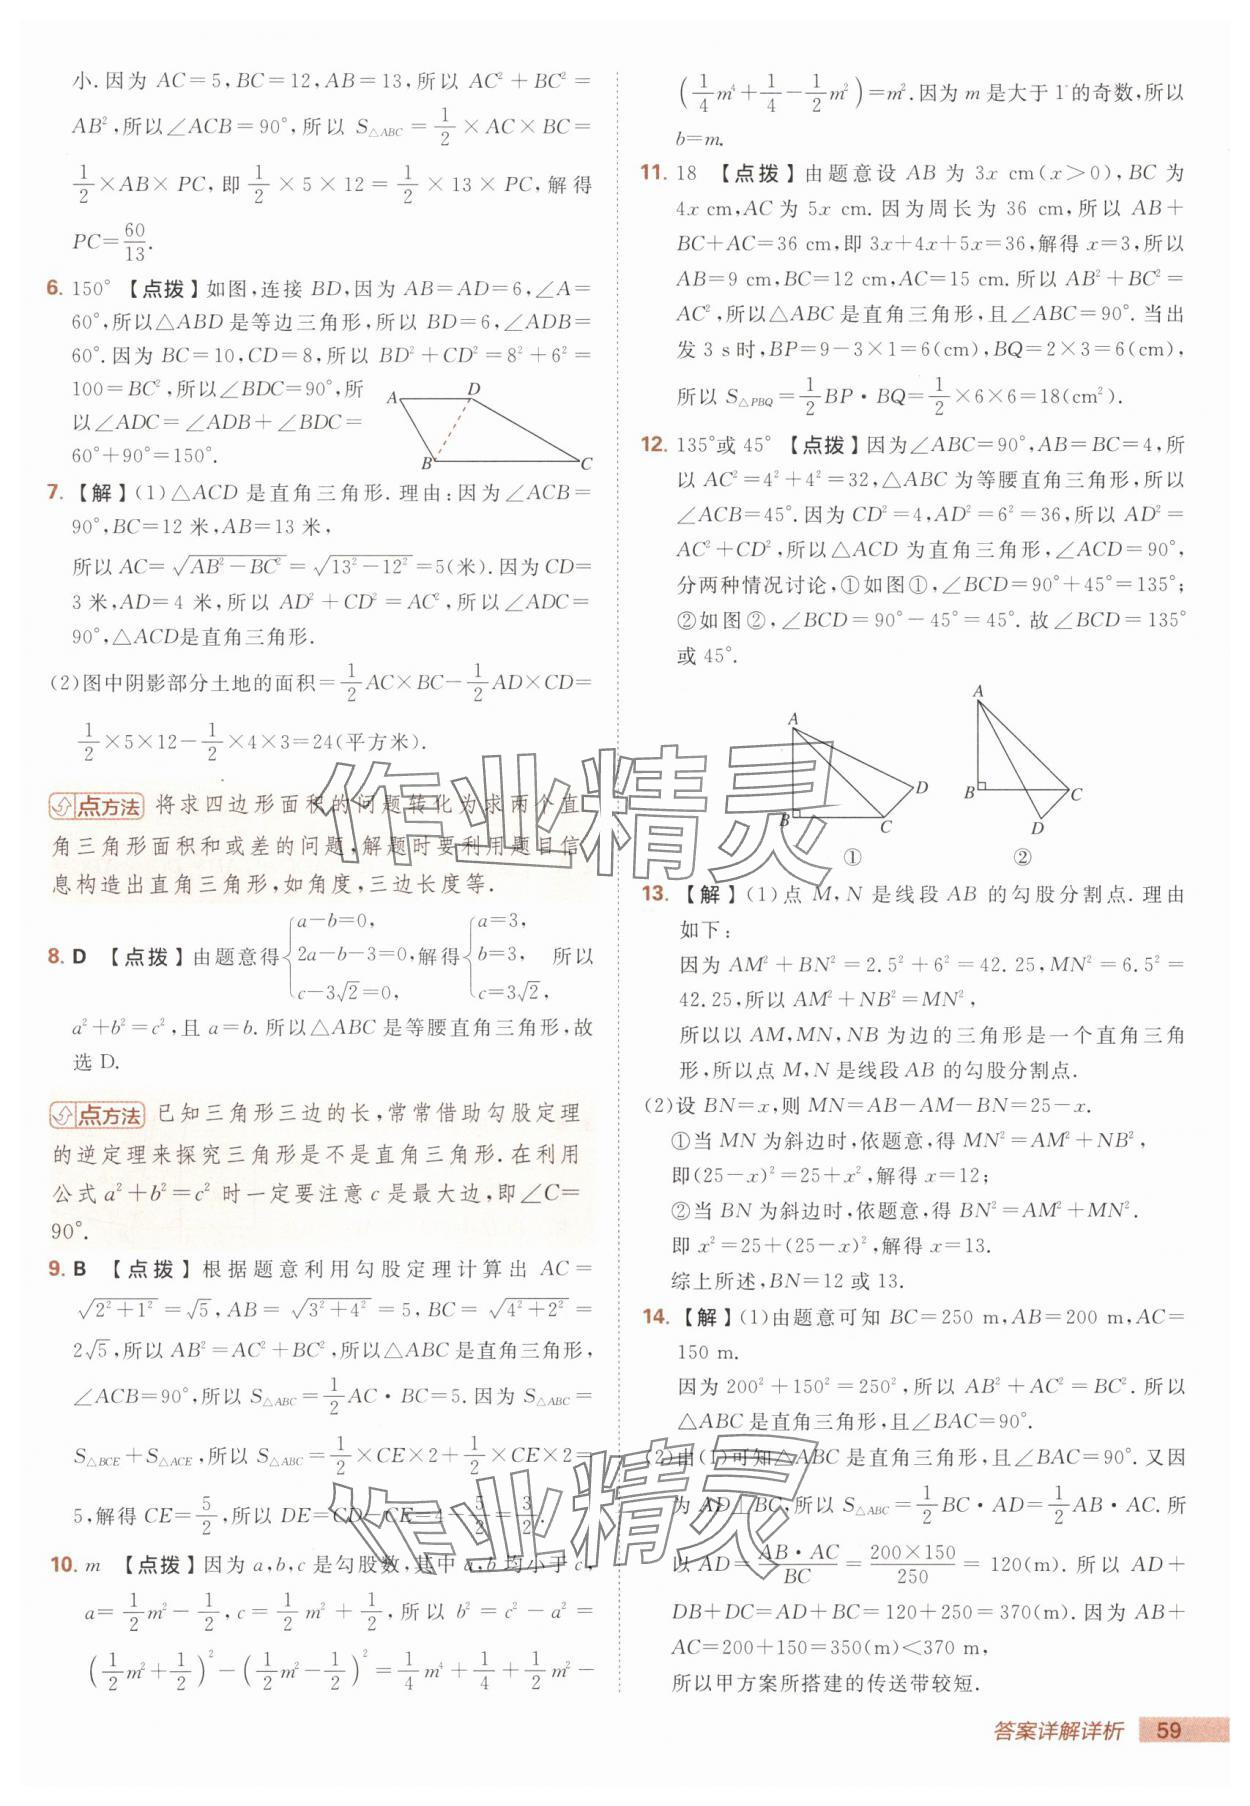 小.因为 AC=5,BC=12,AB=13,所以 AC²+BC²=
AB²,所以∠ACB=90°,所以 S△ABC=1/2×AC×BC=
1/2×AB×PC,即 1/2×5×12=1/2×13×PC,解得
PC=60/13.
6. 150° 【点拨】如图,连接 BD,因为 AB=AD=6,∠A=
60°,所以△ABD 是等边三角形,所以 BD=6,∠ADB=
60°.因为 BC=10,CD=8,所以 BD²+CD²=8²+6²=
100=BC²,所以∠BDC=90°,所
以∠ADC=∠ADB+∠BDC=
60°+90°=150°.
A D
B C
7. 【解】(1)△ACD 是直角三角形.理由:因为∠ACB=
90°,BC=12 米,AB=13 米,
所以 AC=√(AB²-BC²)=√(13²-12²)=5(米).因为 CD=
3 米,AD=4 米,所以 AD²+CD²=AC²,所以∠ADC=
90°,△ACD是直角三角形.
(2)图中阴影部分土地的面积=1/2AC×BC-1/2AD×CD=
1/2×5×12-1/2×4×3=24(平方米).
点方法 将求四边形面积的问题转化为求两个直
角三角形面积和或差的问题,解题时要利用题目信
息构造出直角三角形,如角度,三边长度等.
8. D 【点拨】由题意得{a-b=0, 2a-b-3=0, c-3√2=0, 解得{a=3, b=3, c=3√2, 所以
a²+b²=c²,且 a=b.所以△ABC 是等腰直角三角形,故
选 D.
点方法 已知三角形三边的长,常常借助勾股定理
的逆定理来探究三角形是不是直角三角形.在利用
公式 a²+b²=c² 时一定要注意 c 是最大边,即∠C=
90°.
9. B 【点拨】根据题意利用勾股定理计算出 AC=
√(2²+1²)=√5,AB=√(3²+4²)=5,BC=√(4²+2²)=
2√5,所以 AB²=AC²+BC²,所以△ABC 是直角三角形,
∠ACB=90°,所以 S△ABC=1/2AC·BC=5.因为 S△ABC=
S△BCE+S△ACE,所以 S△ABC=1/2×CE×2+1/2×CE×2=
5,解得 CE=5/2,所以 DE=CD-CE=4-5/2=3/2.
10. m 【点拨】因为 a,b,c 是勾股数,其中 a,b 均小于 c,
a=1/2m²-1/2,c=1/2m²+1/2,所以 b²=c²-a²=
(1/2m²+1/2)²-(1/2m²-1/2)²=1/4m⁴+1/4+1/2m²-
(1/4m⁴+1/4-1/2m²)=m².因为 m 是大于 1 的奇数,所以
b=m.
11. 18 【点拨】由题意设 AB 为 3x cm(x>0),BC 为
4x cm,AC 为 5x cm.因为周长为 36 cm,所以 AB+
BC+AC=36 cm,即 3x+4x+5x=36,解得 x=3,所以
AB=9 cm,BC=12 cm,AC=15 cm.所以 AB²+BC²=
AC²,所以△ABC 是直角三角形,且∠ABC=90°.当出
发 3 s 时,BP=9-3×1=6(cm),BQ=2×3=6(cm),
所以 S△PBQ=1/2BP·BQ=1/2×6×6=18(cm²).
12. 135°或 45° 【点拨】因为∠ABC=90°,AB=BC=4,所
以 AC²=4²+4²=32,△ABC 为等腰直角三角形,所以
∠ACB=45°.因为 CD²=4,AD²=6²=36,所以 AD²=
AC²+CD²,所以△ACD 为直角三角形,∠ACD=90°,
分两种情况讨论,①如图①,∠BCD=90°+45°=135°;
②如图②,∠BCD=90°-45°=45°.故∠BCD=135°
或 45°.
A B C D ①
A B C D ②
13. 【解】(1)点 M,N 是线段 AB 的勾股分割点.理由
如下:
因为 AM²+BN²=2.5²+6²=42.25,MN²=6.5²=
42.25,所以 AM²+NB²=MN²,
所以以 AM,MN,NB 为边的三角形是一个直角三角
形,所以点 M,N 是线段 AB 的勾股分割点.
(2)设 BN=x,则 MN=AB-AM-BN=25-x.
①当 MN 为斜边时,依题意,得 MN²=AM²+NB²,
即(25-x)²=25+x²,解得 x=12;
②当 BN 为斜边时,依题意,得 BN²=AM²+MN².
即 x²=25+(25-x)²,解得 x=13.
综上所述,BN=12 或 13.
14. 【解】(1)由题意可知 BC=250 m,AB=200 m,AC=
150 m.
因为 200²+150²=250²,所以 AB²+AC²=BC².所以
△ABC 是直角三角形,且∠BAC=90°.
(2)由(1)可知△ABC 是直角三角形,且∠BAC=90°.又因
为 AD⊥BC,所以 S△ABC=1/2BC·AD=1/2AB·AC.所
以 AD=AB·AC/BC=200×150/250=120(m).所以 AD+
DB+DC=AD+BC=120+250=370(m).因为 AB+
AC=200+150=350(m)<370 m,
所以甲方案所搭建的传送带较短.
作业精灵
作业精灵
答案详解详析 59